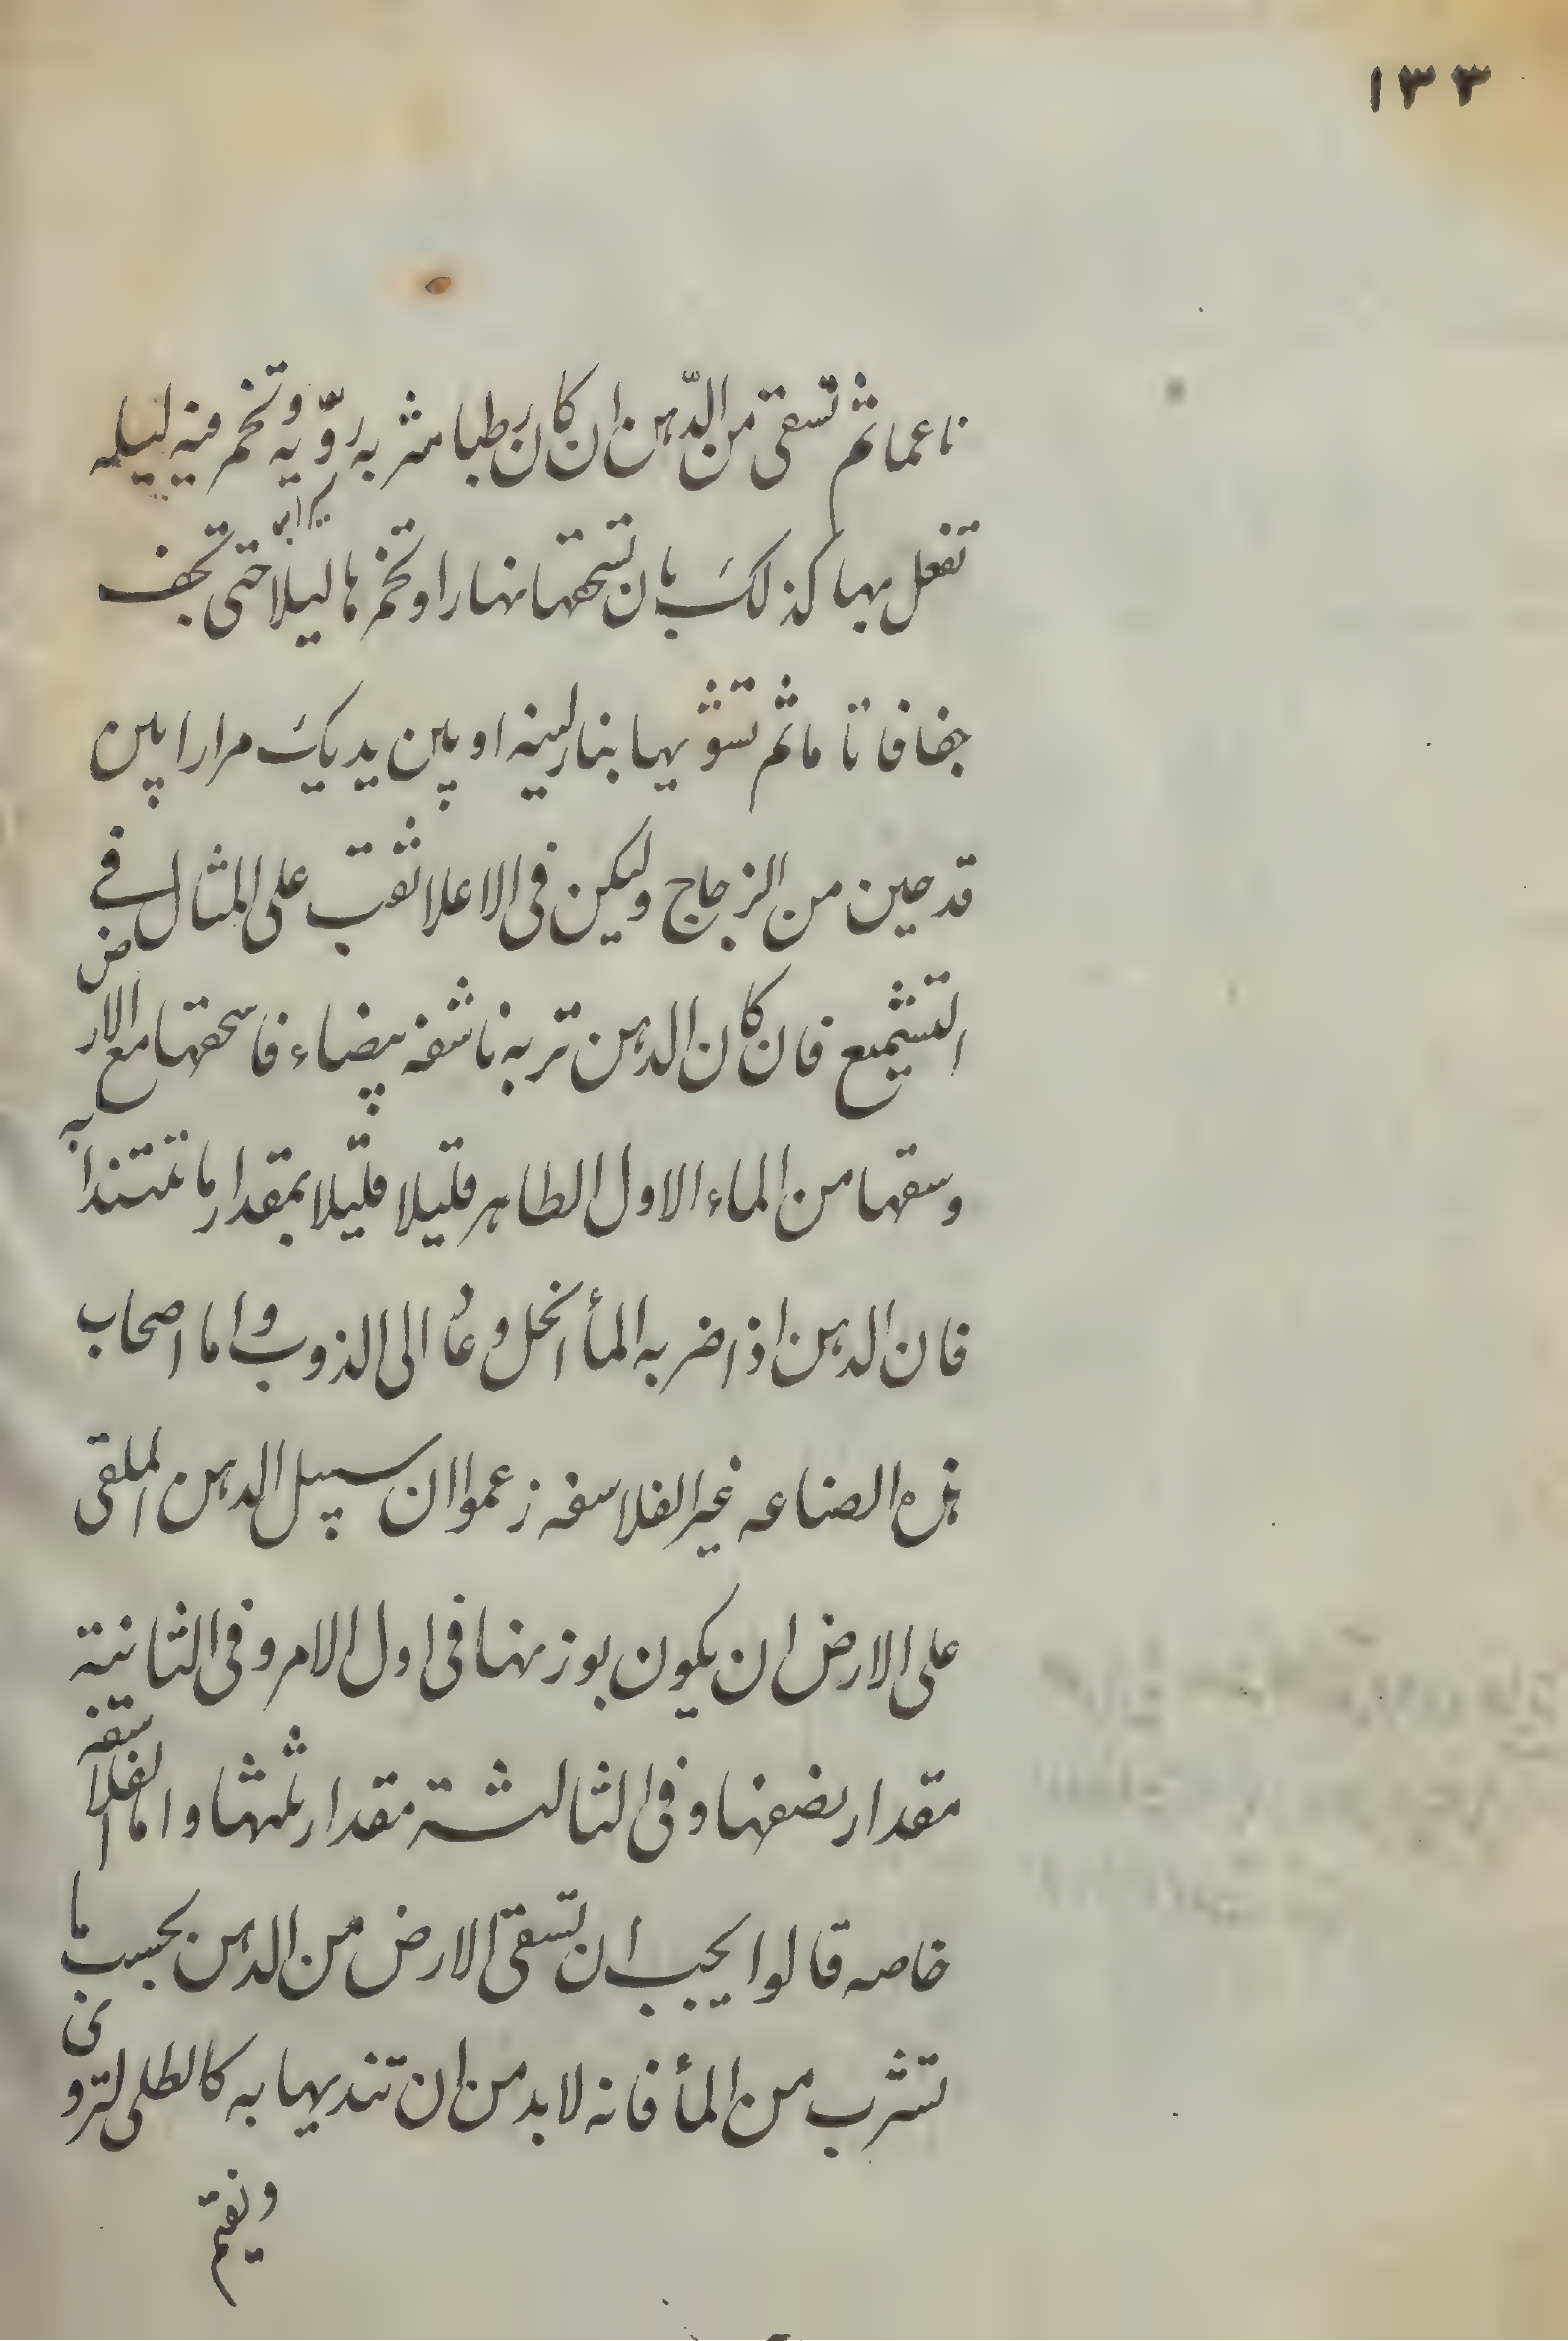 ١٣٣
ناعما ثم تسقى من الدّهن ان كان رطبا شربه رويّه وتخمر فيه ليله
تفعل بها كذلك بان تسحقها نهارا وتخمرها ليلا حتى تجف
جفافا تاما ثم تشويها بنار لينه او بين يديك مرارا بين
قدحين من الزجاج وليكن فى الاعلا ثقب على المثال فى
التشميع فان كان الدهن تربه ناشفه بيضاء فاسحقها مع الارض
وسقها من الماء الاول الطاهر قليلا قليلا بمقدار ما تتندا به
فان الدهن اذا ضربه المأ انحل وعاد الى الذوب واما اصحاب
هذه الصناعه غير الفلاسفه زعموا ان سبيل الدهن الملقى
على الارض ان يكون بوزنها فى اول الامر وفى الثانية
مقدار نصفها وفى الثالثة مقدار ثلثها واما الفلاسفه
خاصه قالوا يجب ان تسقى الارض من الدهن بحسب ما
تشرب من المأ فانه لا بد من ان تنديها به كالطلى لتروى
ونقيم